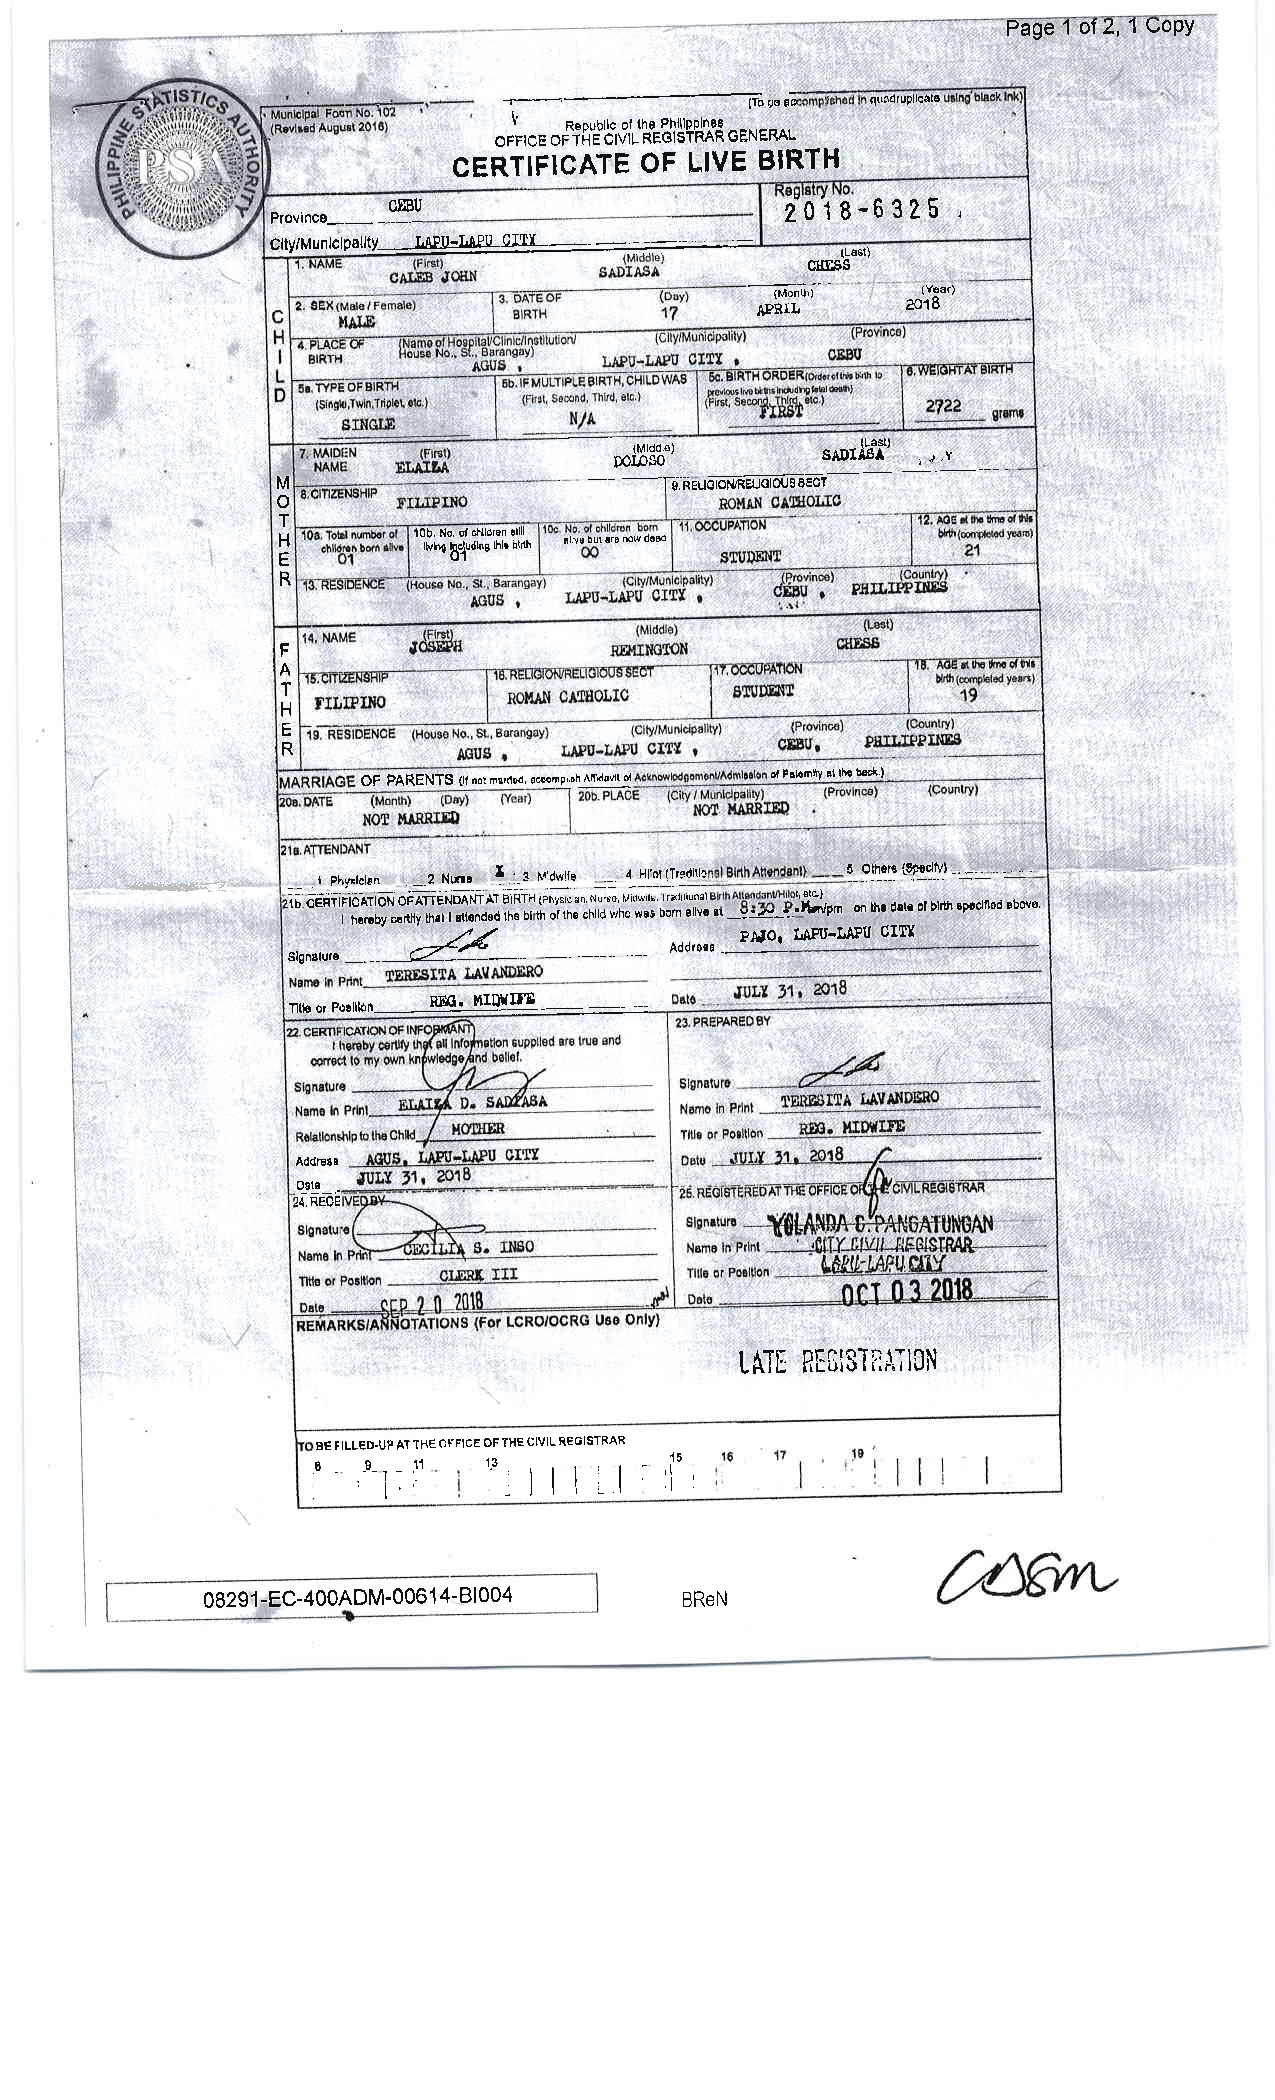 Page 1 of 2, 1 Copy
PHILIPPINE STATISTICS AUTHORITY
PSA
Municipal Form No. 102
(Revised August 2016)
(To be accomplished in quadruplicate using black ink)
Republic of the Philippines
OFFICE OF THE CIVIL REGISTRAR GENERAL
CERTIFICATE OF LIVE BIRTH
Province CEBU
Registry No.
2018-6325
City/Municipality LAPU-LAPU CITY
CHILD
1. NAME (First) (Middle) (Last)
CALEB JOHN SADIASA CHESS
2. SEX (Male / Female) 3. DATE OF BIRTH (Day) (Month) (Year)
MALE 17 APRIL 2018
4. PLACE OF BIRTH (Name of Hospital/Clinic/Institution/ House No., St., Barangay) (City/Municipality) (Province)
AGUS , LAPU-LAPU CITY , CEBU
5a. TYPE OF BIRTH (Single, Twin, Triplet, etc.)
SINGLE
5b. IF MULTIPLE BIRTH, CHILD WAS (First, Second, Third, etc.)
N/A
5c. BIRTH ORDER (Order of this birth to previous live births including fetal death) (First, Second, Third, etc.)
FIRST
6. WEIGHT AT BIRTH
2722 grams
MOTHER
7. MAIDEN NAME (First) (Middle) (Last)
ELAIZA DOLOSO SADIASA
8. CITIZENSHIP
FILIPINO
9. RELIGION/RELIGIOUS SECT
ROMAN CATHOLIC
10a. Total number of children born alive
01
10b. No. of children still living including this birth
01
10c. No. of children born alive but are now dead
00
11. OCCUPATION
STUDENT
12. AGE at the time of this birth (completed years)
21
13. RESIDENCE (House No., St., Barangay) (City/Municipality) (Province) (Country)
AGUS , LAPU-LAPU CITY , CEBU , PHILIPPINES
FATHER
14. NAME (First) (Middle) (Last)
JOSEPH REMINGTON CHESS
15. CITIZENSHIP
FILIPINO
16. RELIGION/RELIGIOUS SECT
ROMAN CATHOLIC
17. OCCUPATION
STUDENT
18. AGE at the time of this birth (completed years)
19
19. RESIDENCE (House No., St., Barangay) (City/Municipality) (Province) (Country)
AGUS , LAPU-LAPU CITY , CEBU, PHILIPPINES
MARRIAGE OF PARENTS (If not married, accomplish Affidavit of Acknowledgement/Admission of Paternity at the back.)
20a. DATE (Month) (Day) (Year) 20b. PLACE (City / Municipality) (Province) (Country)
NOT MARRIED NOT MARRIED
21a. ATTENDANT
1 Physician 2 Nurse X 3 Midwife 4 Hilot (Traditional Birth Attendant) 5 Others (Specify)
21b. CERTIFICATION OF ATTENDANT AT BIRTH (Physician, Nurse, Midwife, Traditional Birth Attendant/Hilot, etc.)
I hereby certify that I attended the birth of the child who was born alive at 8:30 P.M am/pm on the date of birth specified above.
Signature
Address PAJO, LAPU-LAPU CITY
Name in Print TERESITA LAVANDERO
Title or Position REG. MIDWIFE
Date JULY 31, 2018
22. CERTIFICATION OF INFORMANT
I hereby certify that all information supplied are true and correct to my own knowledge and belief.
Signature
Name in Print ELAIZA D. SADIASA
Relationship to the Child MOTHER
Address AGUS, LAPU-LAPU CITY
Date JULY 31, 2018
23. PREPARED BY
Signature
Name in Print TERESITA LAVANDERO
Title or Position REG. MIDWIFE
Date JULY 31, 2018
24. RECEIVED BY
Signature
Name in Print CECILIA S. INSO
Title or Position CLERK III
Date SEP 20 2018
25. REGISTERED AT THE OFFICE OF THE CIVIL REGISTRAR
Signature YOLANDA C. PANGATUNGAN
Name in Print CITY CIVIL REGISTRAR
Title or Position LAPU-LAPU CITY
Date OCT 03 2018
REMARKS/ANNOTATIONS (For LCRO/OCRG Use Only)
LATE REGISTRATION
TO BE FILLED-UP AT THE OFFICE OF THE CIVIL REGISTRAR
8 9 11 13 15 16 17 19
08291-EC-400ADM-00614-BI004
BReN